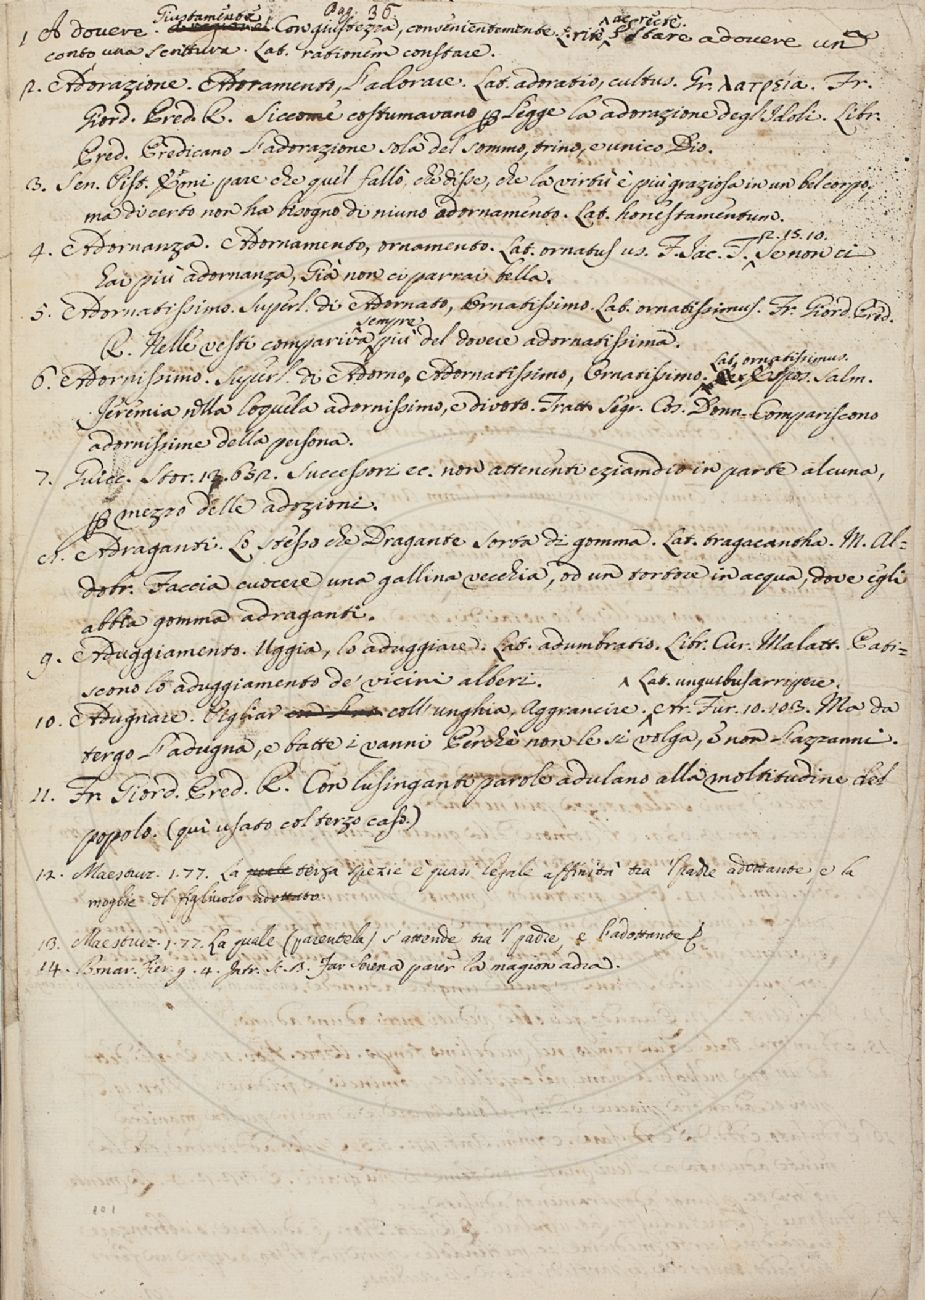 Pag. 36.
Giustamente ac recte.
1 A dovere. di ragione. Con giustezza, convenientemente. Lat. rite, Stare a dovere un
conto una scrittura. Lat. rationem constare.
2. Adorazione. Adoramento, L'adorare. Lat. adoratio, cultus. Gr. λατρεία. Fr.
Giord. Pred. R. Siccome costumavano p Legge la adorazione degl'Idoli. Libr.
Pred. Predicano l'adorazione sola del sommo, trino, e unico Dio.
3. Sen. Pist. E' mi pare che quel fallò, che disse, che la virtù è più graziosa in un bel corpo,
ma di certo non ha bisogno di niuno adornamento. Lat. honestamentum.
4. Adornanza. Adornamento, ornamento. Lat. ornatus us. F. Jac. T. 2. 15. 10. Se non ci
hai più adornanza, Già non ci parrai bella.
5. Adornatissimo. Superl. di Adornato, Ornatissimo. Lat. ornatissimus. Fr. Giord. Pred.
R. Nelle vesti compariva sempre più del dovere adornatissima.
6. Adornissimo. Superl. di Adorno, Adornatissimo, Ornatissimo. Lat. ornatissimus. Espos. Salm.
Jeremia nella loquela adornissimo, e divoto. Tratt. Segr. Cos. Donn. Compariscono
adornissime della persona.
7. Guicc. Stor. 12. 632. Successori ec. non attenenti eziamdio in parte alcuna,
p mezzo delle adozioni.
8. Adraganti. Lo stesso che Dragante sorta di gomma. Lat. tragacantha. M. Al=
dobr. Faccia cuocere una gallina vecchia, od un tortore in acqua, dove egli
abbia gomma adraganti.
9. Aduggiamento. Uggia, lo aduggiare. Lat. adumbratio. Libr. Cur. Malatt. Pati=
scono lo aduggiamento de' vicini alberi.
Lat. unguibus arripere.
10. Adugnare. Pigliar coll'unghia, Aggrancire. Ar. Fur. 10. 103. Ma da
tergo l'adugna, e batte i vanni Perchè non le si volga, e non l'azzanni.
11. Fr. Giord. Pred. R. Con lusinganti parole adulano alla moltitudine del
popolo. (qui usato col terzo caso.)
12. Maestruz. 1. 77. La quale terza spezie è quasi legale affinità tra 'l padre adottante, e la
moglie del figliuolo adottato.
13. Maestruz. 1. 77. La quale (parentela) s'attende tra 'l padre, e l'adottante
14. Buonar. Fier. 9. 4. Intr. Far scena parer la magion adra.
101